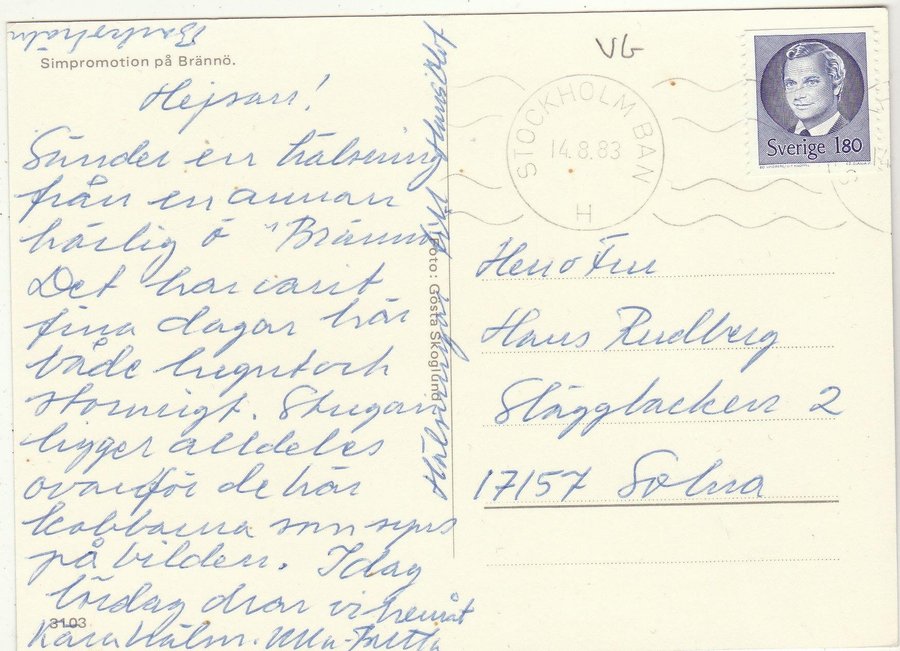 Simpromotion på Brännö.
Hejsan!
Sänder en hälsning
från en annan
härlig ö "Brännö
Det har varit
fina dagar här
både lugnt och
stormigt. Stugan
ligger alldeles
ovanför de här
kobbarna som syns
på bilden. Idag
lördag drar vi hemåt
Kära hälsn.
3103
Hälsningar
Hans Olof
Foto: Gösta Skoglund
VG
STOCKHOLM BAN
14.8.83
H
Sverige 180
Herr o Fru
Hans Rudberg
Släggbacken 2
17157 Solna